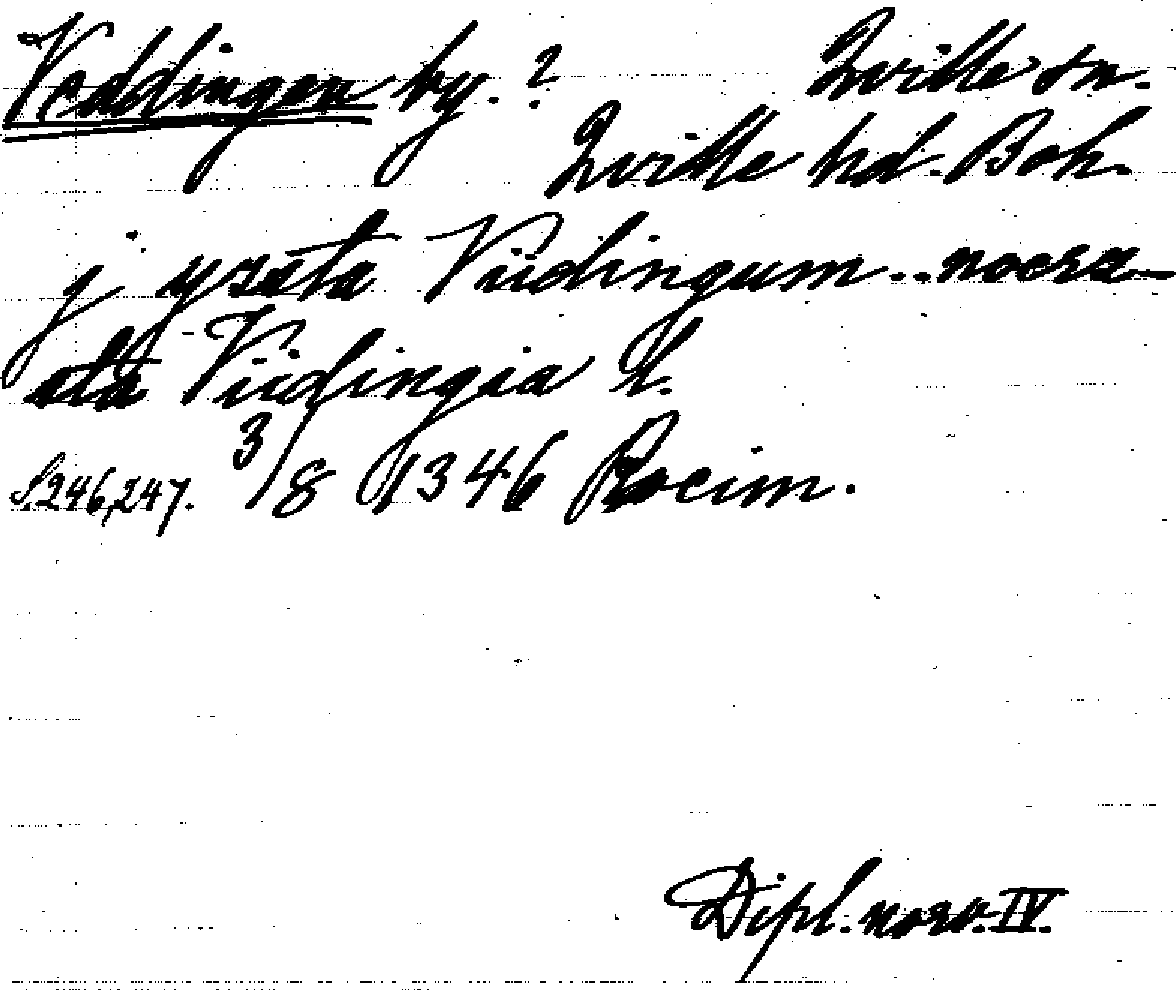 Veddingen by. ? Qville sn.
Qville hd. Boh.
j yzsta Viidingum .. nørza
sta Viidingia k.
S. 246, 247. 3/8 1346 Kocim.
Dipl. norv. IV.